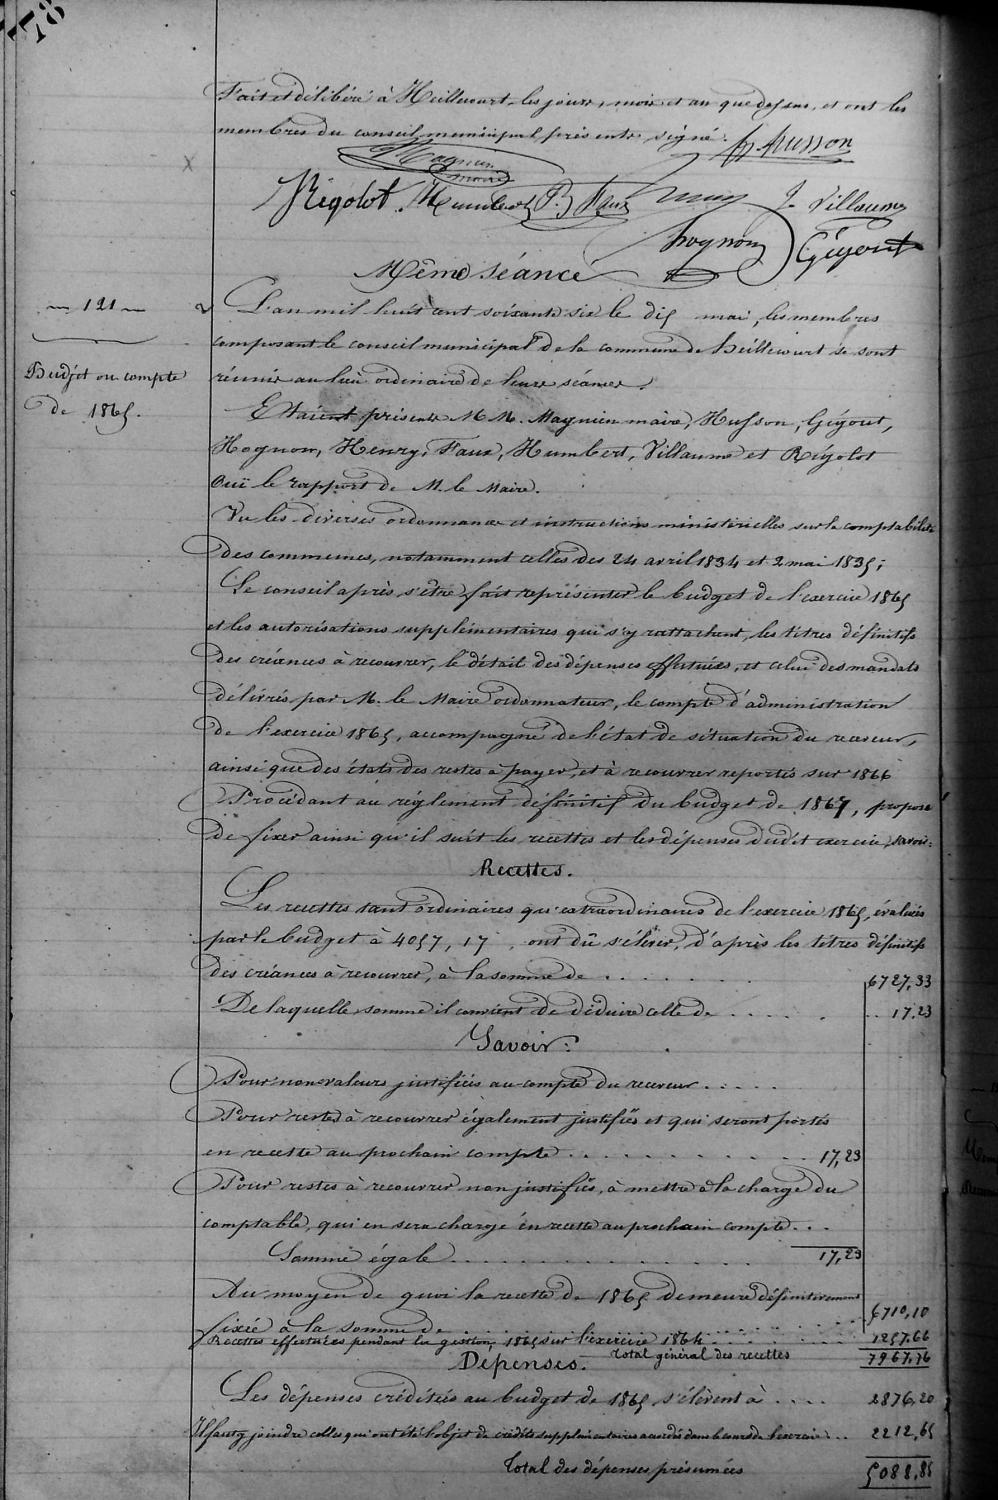 178
Fait et délibéré à Heillecourt les jours, mois et an que dessus, et ont les
membres du conseil municipal présents signé. h. husson
Magnien
maire
Rigolot. Humbert P. Faux Henry J. Villaume
hognon Gégout
Même Séance
— 121 —
Budjet ou compte
de 1865.
L'an mil huit cent soixante six le dix mai, les membres
composant le conseil municipal de la commune de heillecourt se sont
réunis au lieu ordinaire de leurs séances.
Etaient présents M M. Magnien maire, Husson, Gégout,
Hognon, Henry, Faux, Humbert, Villaume et Rigolot
Ouï le rapport de M. le Maire.
Vu les diverses ordonnances et instructions ministérielles sur la comptabilité
des communes, notamment celles des 24 avril 1834 et 2 mai 1835;
Le conseil après s'être fait représenter le budget de l'exercice 1865
et les autorisations supplémentaires qui s'y rattachent, les titres définitifs
des créances à recouvrer, le détail des dépenses effectuées, et celui des mandats
délivrés par M. le Maire ordonnateur, le compte d'administration
de l'exercice 1865, accompagné de l'état de situation du receveur,
ainsi que des états des restes à payer, et à recouvrer reportés sur 1866
Procédant au règlement définitif du budget de 1867, propose
de fixer ainsi qu'il suit les recettes et les dépenses dudit exercice, savoir:
Recettes.
Les recettes tant ordinaires qu'extraordinaires de l'exercice 1865, évaluées
par le budget à 4057,17, ont dû s'élever, d'après les titres définitifs
des créances à recouvrer, à la somme de . . . . . 6727,33
De laquelle somme il convient de déduire celle de . . . . . 17,23
Savoir:
Pour non valeurs justifiées au compte du receveur . . . . .
Pour restes à recouvrer également justifiés et qui seront portés
en recette au prochain compte . . . . . . . . . 17,23
Pour restes à recouvrer non justifiés, à mettre à la charge du
comptable, qui en sera chargé en recette au prochain compte . . .
Somme égale . . . . . . . . . . . . 17,23
Au moyen de quoi la recette de 1865 demeure définitivement
fixée à la somme de . . . . . . . . . . 6710,10
Recettes effectuées pendant la gestion, 1865 sur l'exercice 1864 . . . . . 1257,66
Total général des recettes 7967,76
Dépenses.
Les dépenses créditées au budget de 1865 s'élèvent à . . . . 2876,20
Il faut y joindre celles qui ont été l'objet de crédits supplémentaires accordés dans le cours de l'exercice . . . 2212,65
Total des dépenses présumées 5088,85